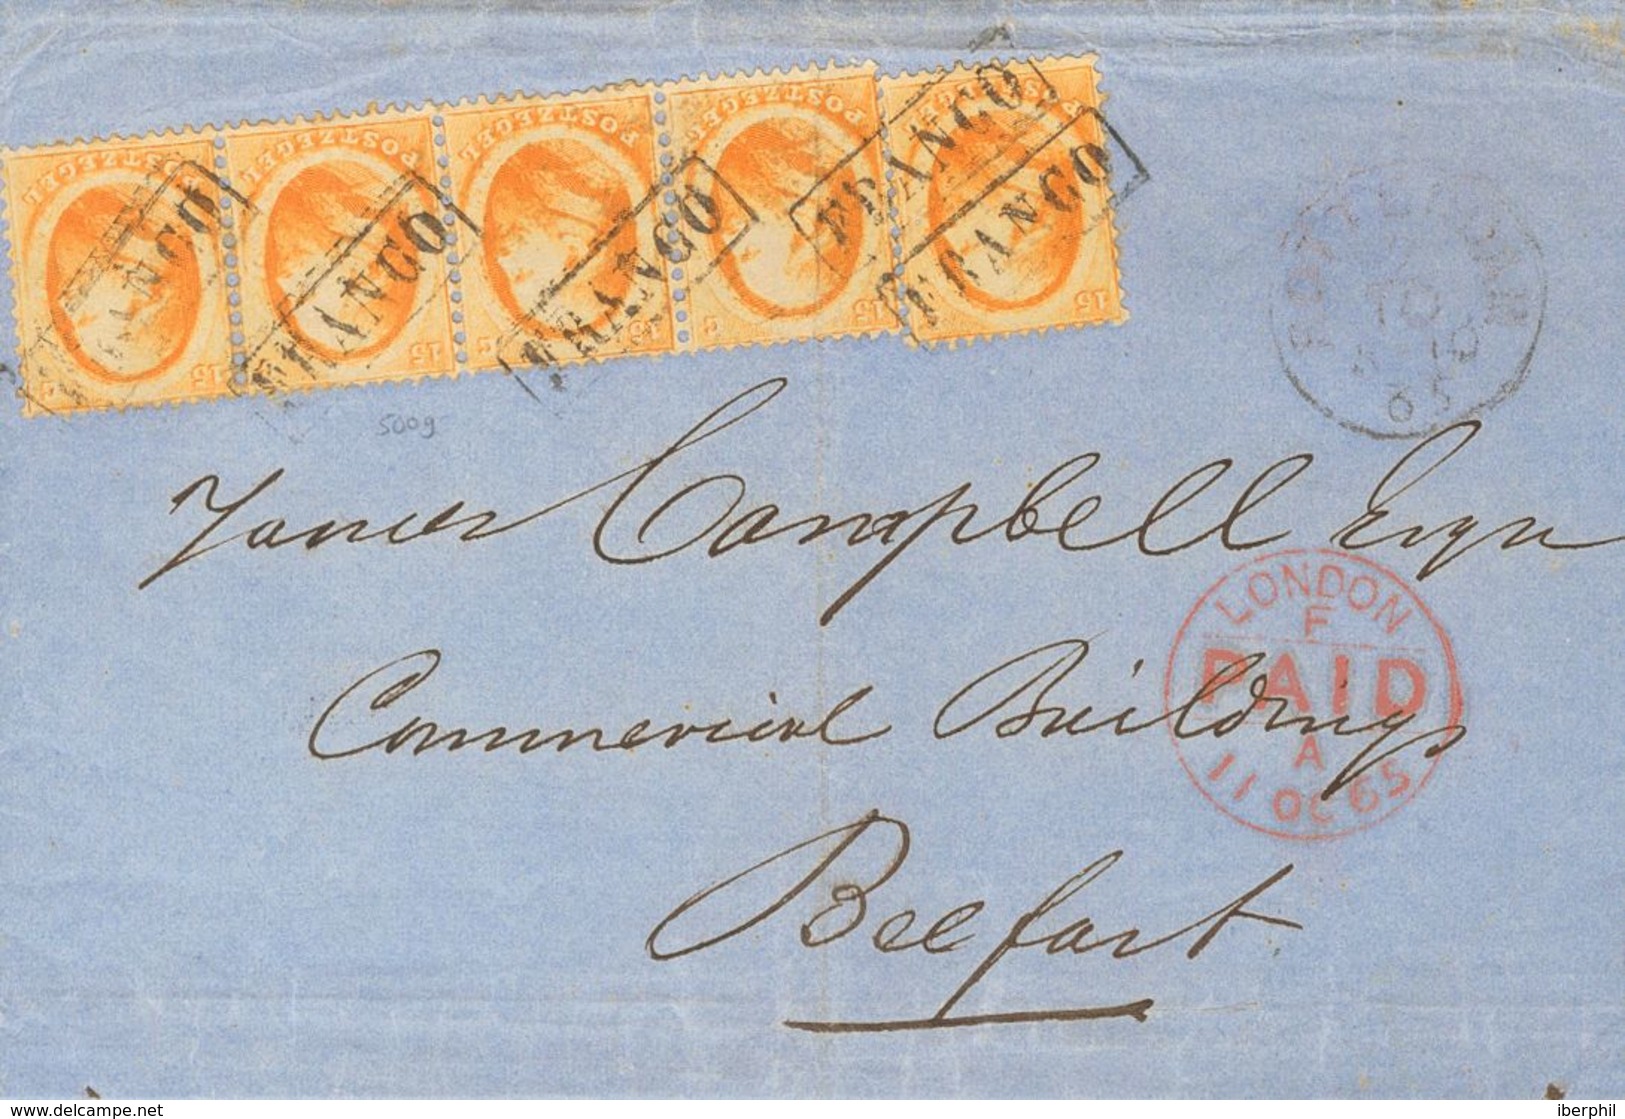 POSTZEGEL POSTZEGEL POSTZEGEL POSTZEGEL
15 15 15 15 15
FRANCO FRANCO FRANCO FRANCO FRANCO
5009
65
James Campbell Esqre
LONDON
F
PAID
A
11 OC 65
Commercial Buildings
Belfast
www.delcampe.net
iberphil